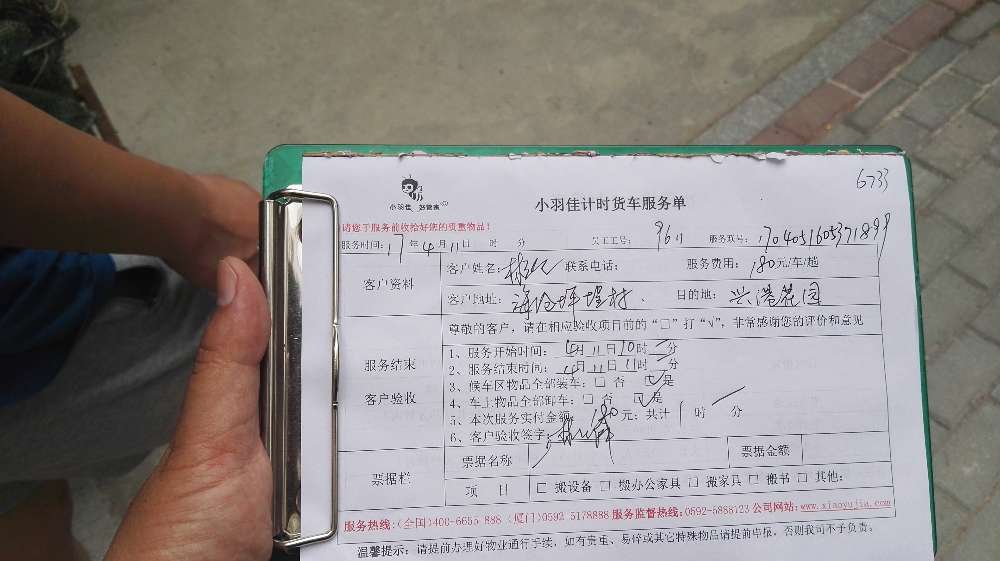 6733
小羽佳 好管家
小羽佳计时货车服务单
请您于服务前收给好您的贵重物品!
服务时间: 17年4月11日 时 分 员工工号: 96 服务联号: 17040516053718
客户资料
客户姓名: 联系电话: 服务费用: 180元/车/趟
客户地址: 村. 目的地: 兴港花园
服务结束
客户验收
尊敬的客户,请在相应验收项目前的“□”打“√”,非常感谢您的评价和意见
1、服务开始时间: 4月11日10时 分
2、服务结束时间: 4月11日11时 分
3、候车区物品全部装车: □ 否 ☑是
4、车上物品全部卸车: □ 否 ☑是
5、本次服务实付金额: 180元; 共计 1 时 分
6、客户验收签字:
票据栏
票据名称 票据金额
项 目 □ 搬设备 □ 搬办公家具 □ 搬家具 □ 搬书 □ 其他:
服务热线:(全国)400-6655 888 (厦门)0592 5178888 服务监督热线:0592-5888123 公司网站: www.xiaoyujia.com
温馨提示: 请提前办理好物业通行手续,如有贵重、易碎或其它特殊物品请提前申报,否则我司不予负责。